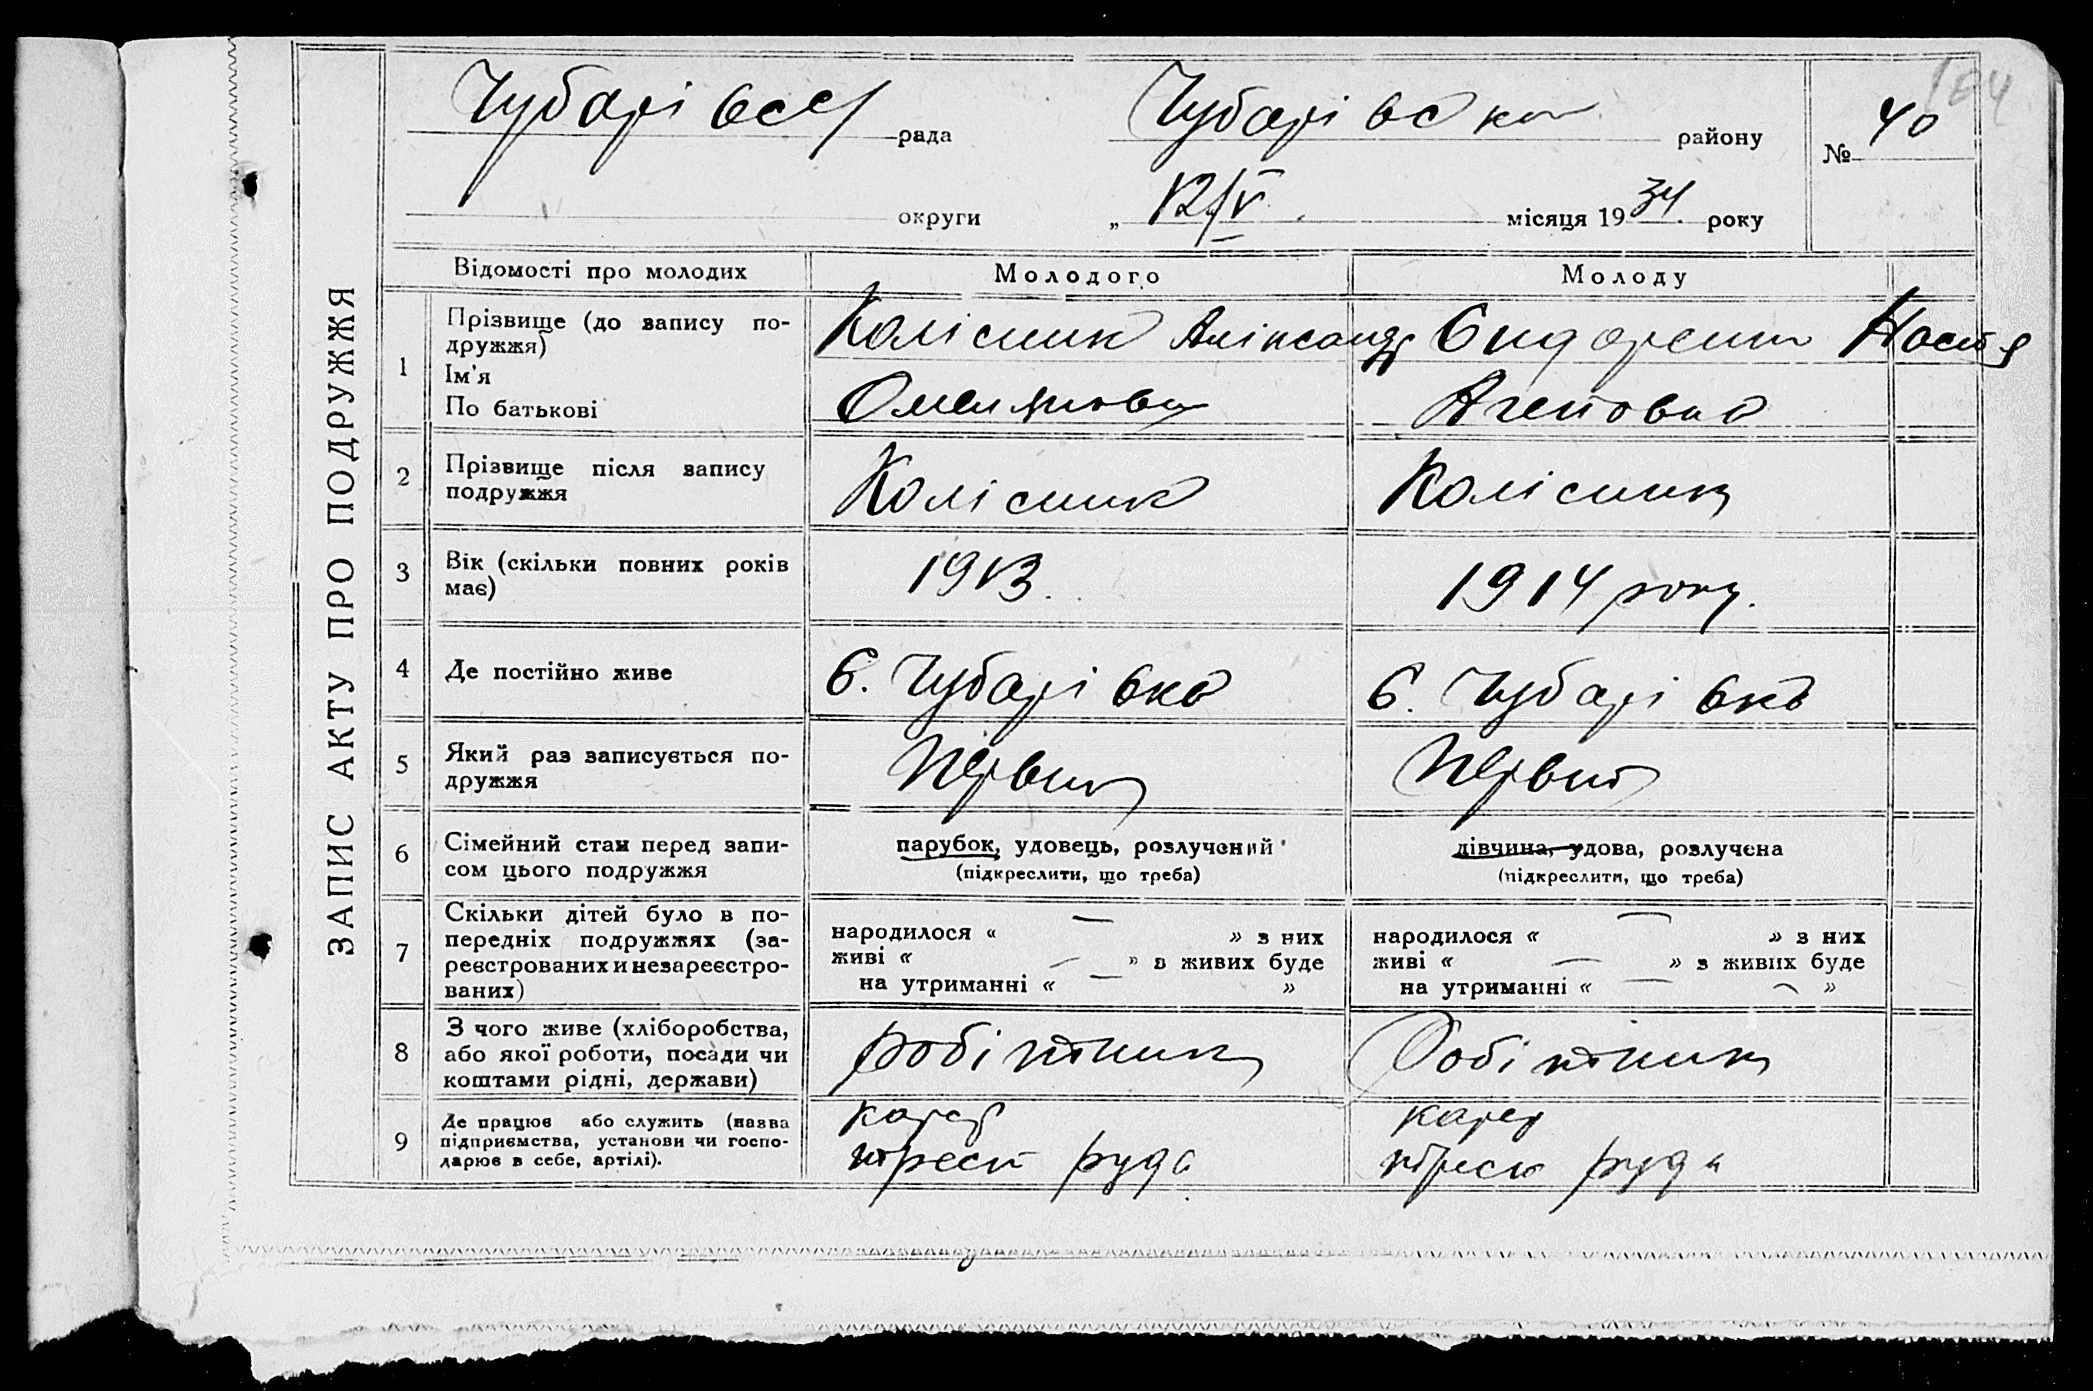 104
Чубарівськ рада Чубарівсько району № 40
округи „ 12/V місяця 1934 року
ЗАПИС АКТУ ПРО ПОДРУЖЖЯ
Відомості про молодих Молодого Молоду
1 Прізвище (до запису по-
дружжя)
Ім'я
По батькові
Колісник Аліксандр
Сидоренко Настя
Агеповна
2 Прізвище після запису
подружжя
Колісник
Колісник
3 Вік (скільки повних років
має)
1913.
1914 року.
4 Де постійно живе
с. Чубарівка
с. Чубарівка
5 Який раз записується по-
дружжя
Первий
Первий
6 Сімейний стан перед запи-
сом цього подружжя
парубок, удовець, розлучений
(підкреслити, що треба)
дівчина, удова, розлучена
(підкреслити, що треба)
7 Скільки дітей було в по-
передніх подружжях (за-
реєстрованих и незареєстро-
ваних)
народилося « — » з них
живі « — » в живих буде
на утриманні « — »
народилося « — » з них
живі « — » з живих буде
на утриманні « — »
8 З чого живе (хліборобства,
або якої роботи, посади чи
коштами рідні, держави)
робітник
Робітник
9 Де працює або служить (назва
підприємства, установи чи госпо-
дарює в себе, артілі).
трест руда
трест руда